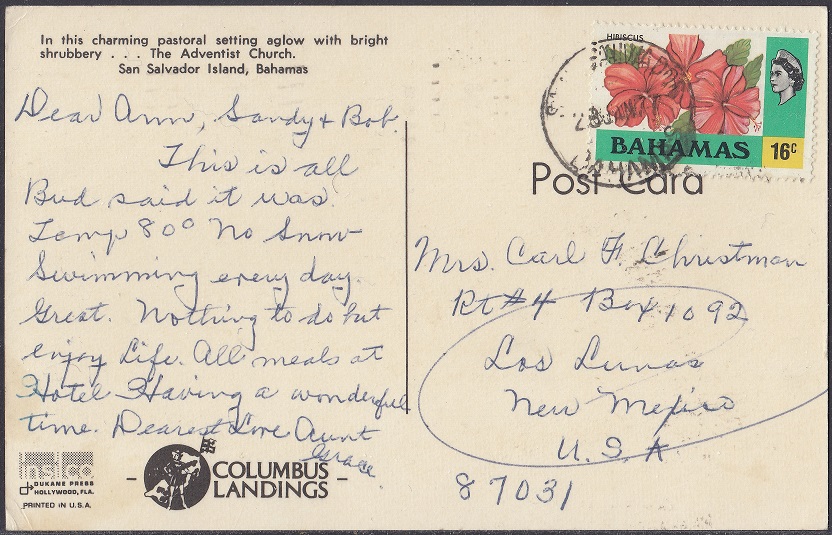 In this charming pastoral setting aglow with bright
shrubbery . . . The Adventist Church.
San Salvador Island, Bahamas
Dear Ann, Sandy + Bob.
This is all
Bud said it was.
Temp 80° No Snow
Swimming every day.
Great. Nothing to do but
enjoy Life. All meals at
Hotel Having a wonderful
time. Dearest Love Aunt
Grace.
COLUMBUS
LANDINGS
DUKANE PRESS
HOLLYWOOD, FLA.
PRINTED IN U.S.A.
HIBISCUS
BAHAMAS 16c
Post Card
Mrs. Carl F. Christman
Rt #4 Box 1092
Los Lunas
New Mexico
U.S.A.
87031